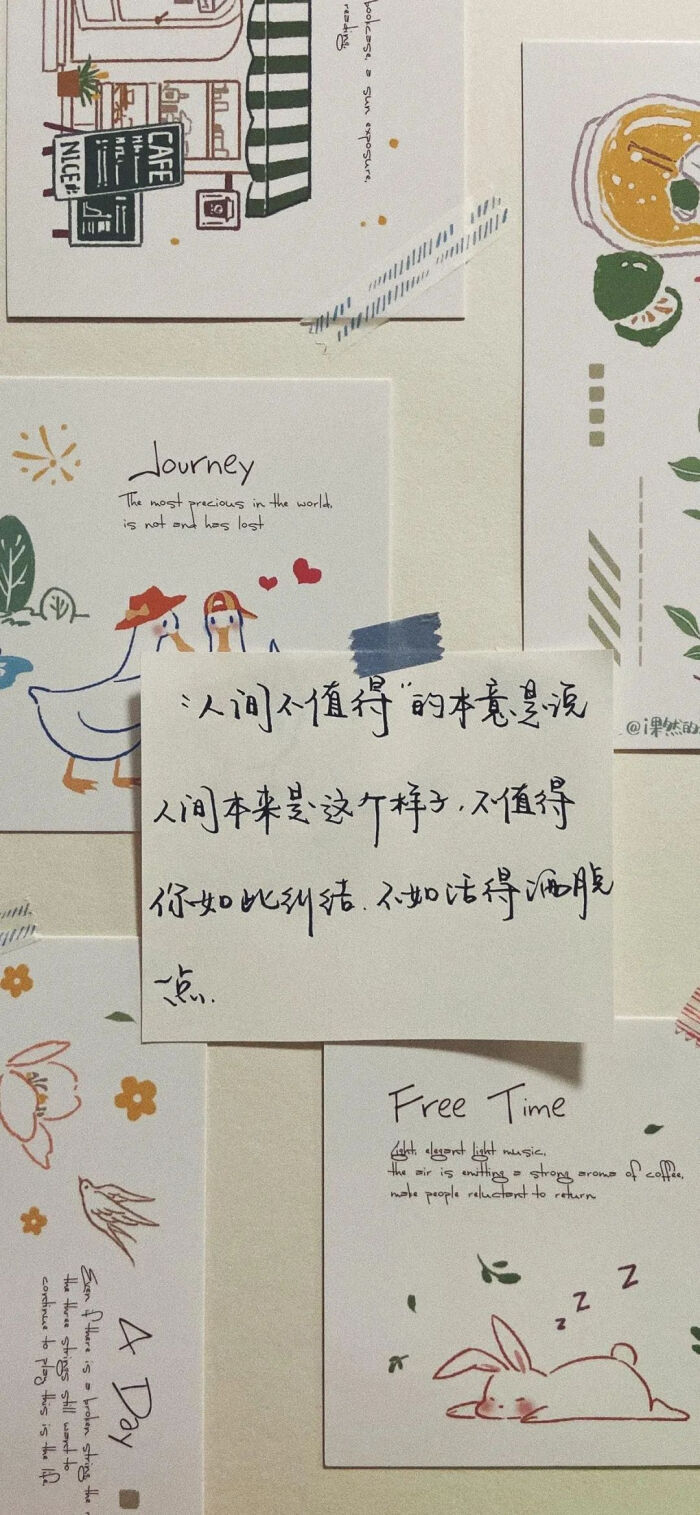 bookcase, a sun exposure,
reading,
CAFE
NICE
Journey
The most precious in the world,
is not and has lost
"人间不值得"的本意是说
人间本来是这个样子,不值得
你如此纠结.不如活得洒脱
一点.
@i果然的
Free Time
Light, elegant light music,
the air is emitting a strong aroma of coffee,
make people reluctant to return
z z z
A Day
Even if there is a broken string the
the three strings still want to
continue to play this is the life